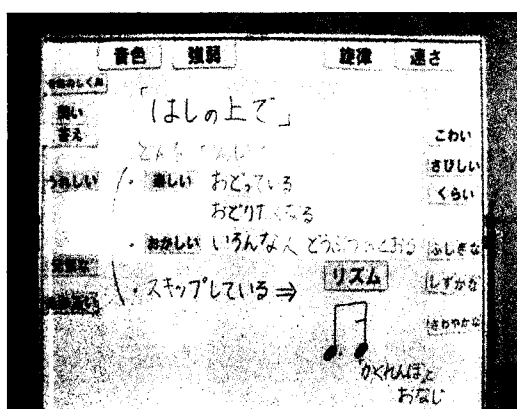 音色 強弱 旋律 速さ
問い
答え
うれしい
「はしの上で」
・楽しい おどっている
おどりたくなる
・おかしい いろんな人 どうぶつ とおる
・スキップしている⇒
リズム
かくれんぼと
おなじ
こわい
さびしい
くらい
ふしぎな
しずかな
さわやかな